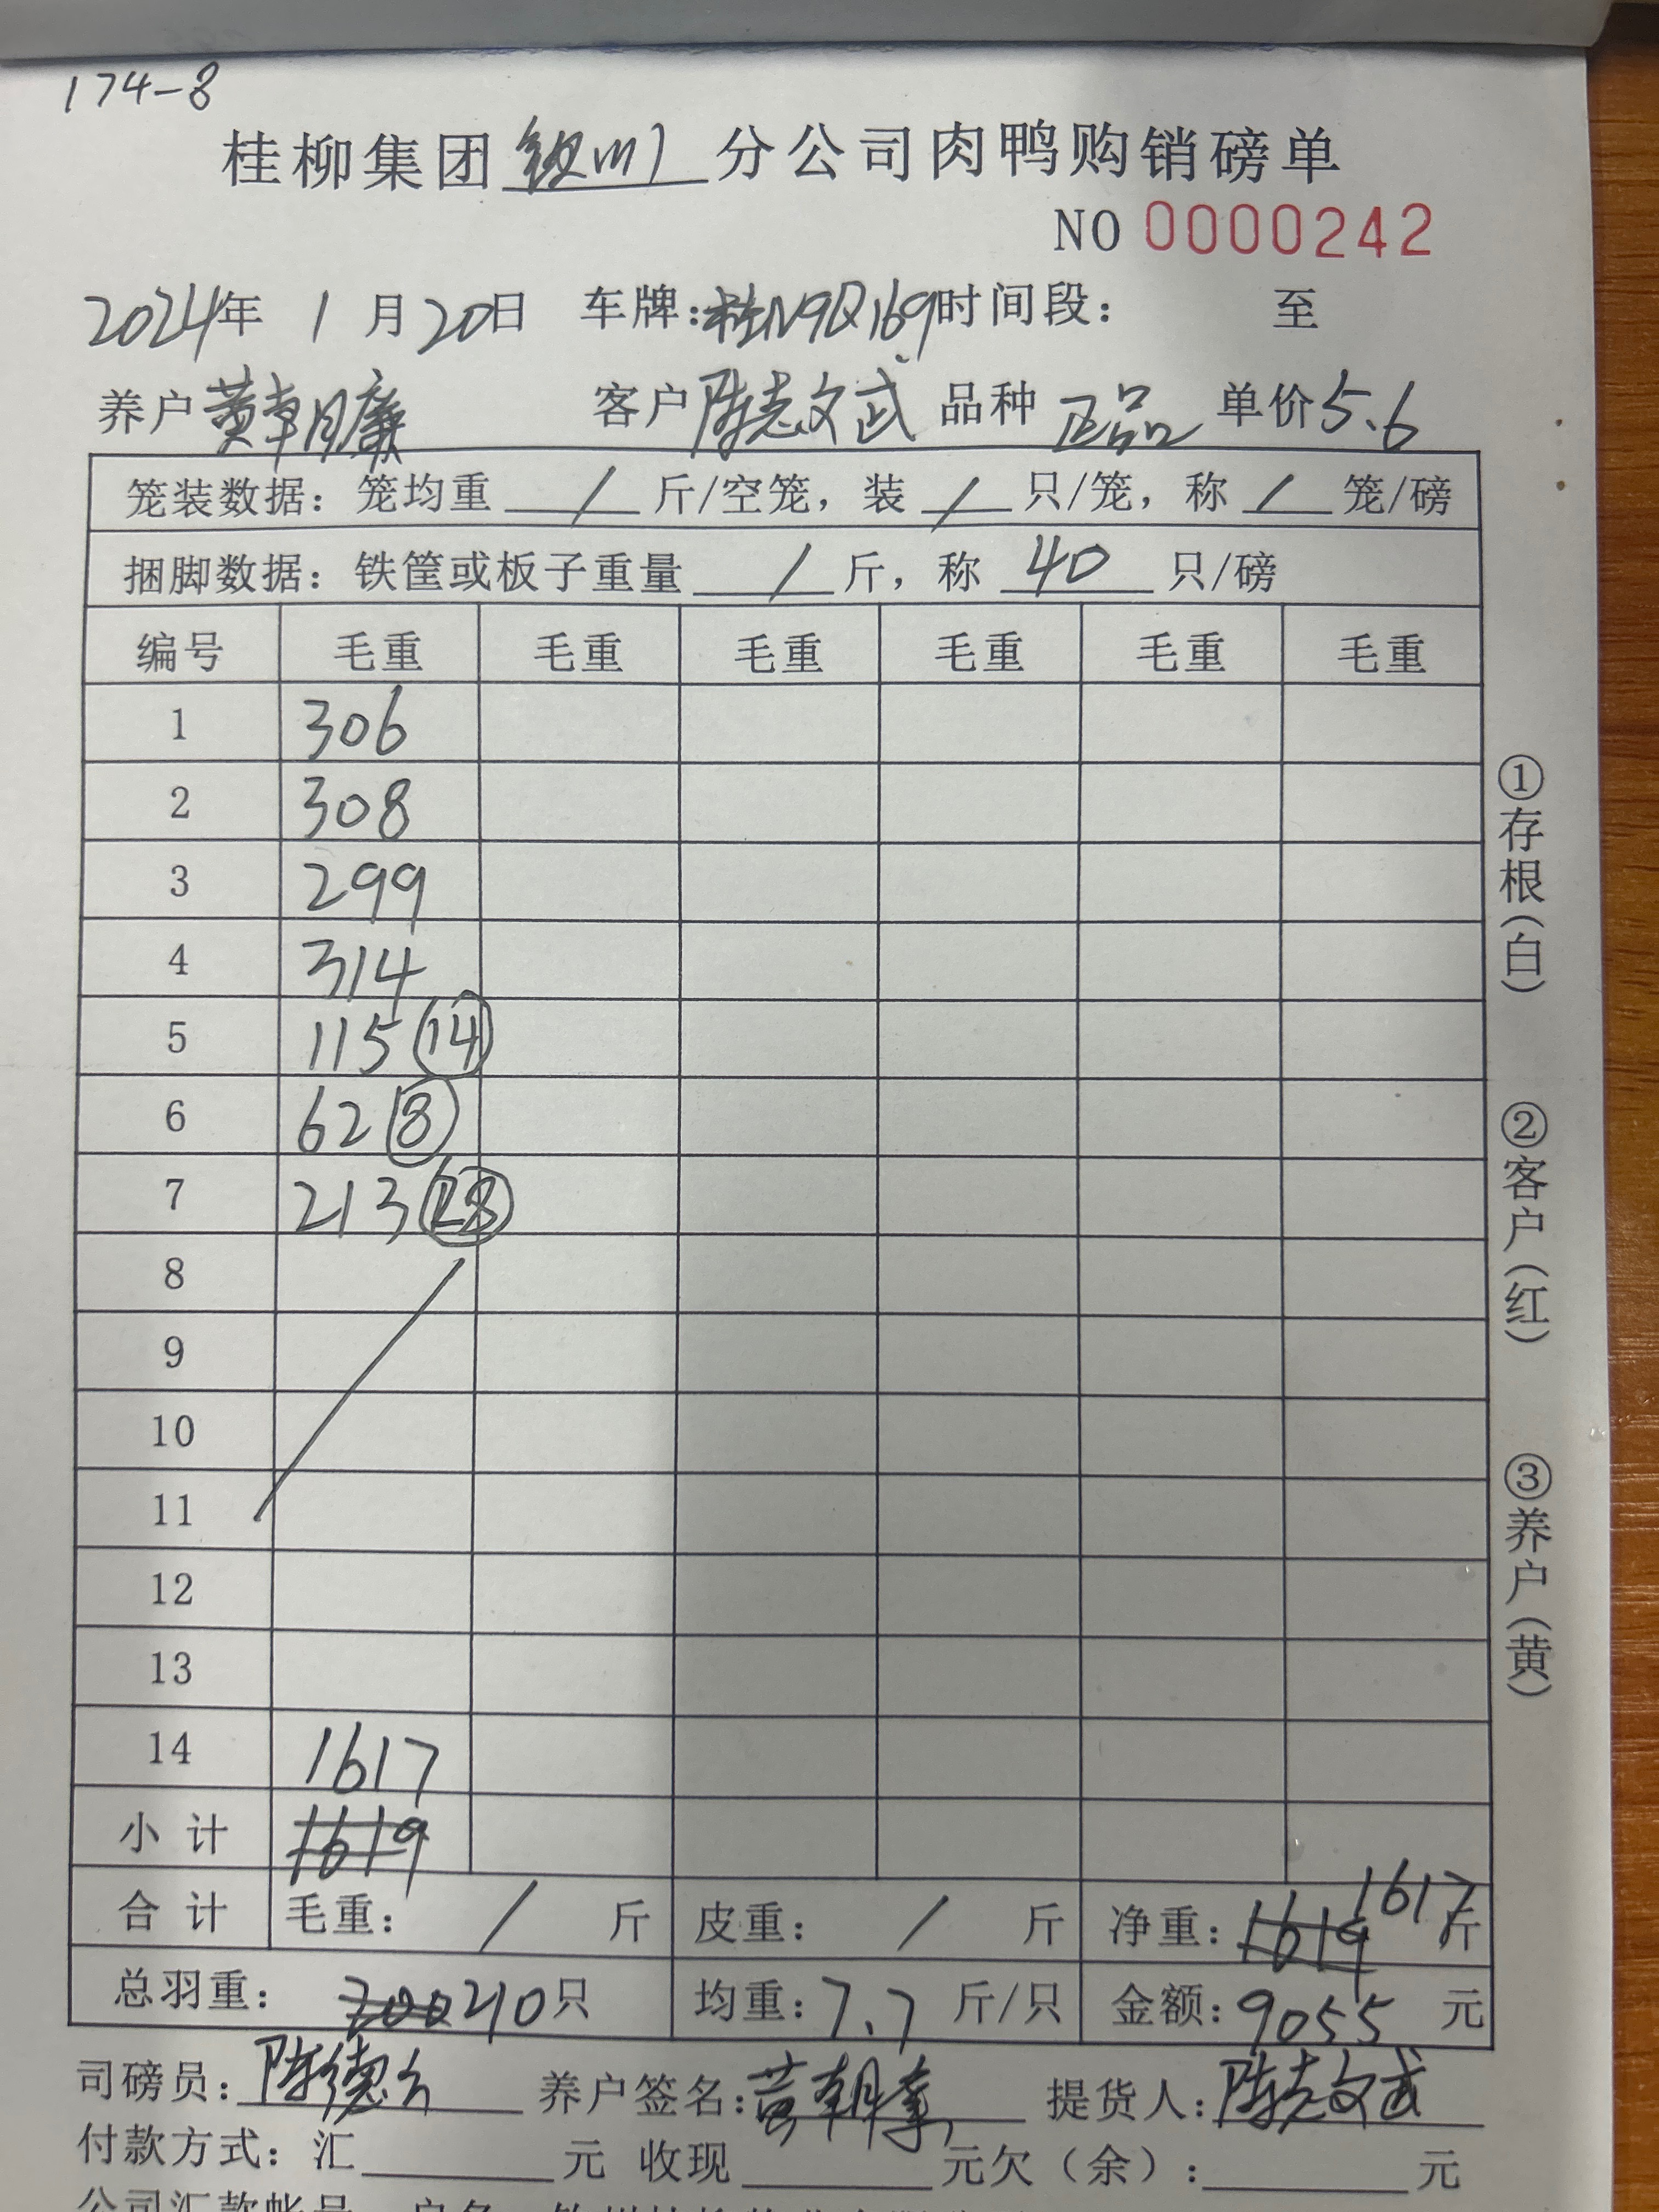 174-8
桂柳集团钦州分公司肉鸭购销磅单
NO 0000242
2024年 1 月 20日 车牌:桂N9Q169 时间段: 至
养户 黄朝廉 客户 陈志文武 品种 正品 单价 5.6
笼装数据: 笼均重 / 斤/空笼, 装 / 只/笼, 称 / 笼/磅
捆脚数据: 铁筐或板子重量 / 斤, 称 40 只/磅
编号 毛重 毛重 毛重 毛重 毛重 毛重
1 306
2 308
3 299
4 314
5 115 ⑭
6 62 ⑧
7 213 28
8
9
10
11
12
13
14 1617
小计 1619
合计 毛重: / 斤 皮重: / 斤 净重: 1619 1617 斤
总羽重: 200 210 只 均重: 7.7 斤/只 金额: 9055 元
司磅员: 陈德 养户签名: 黄朝廉 提货人: 陈志文武
付款方式: 汇 元 收现 元 欠(余): 元
公司汇款帐号
①存根(白)
②客户(红)
③养户(黄)